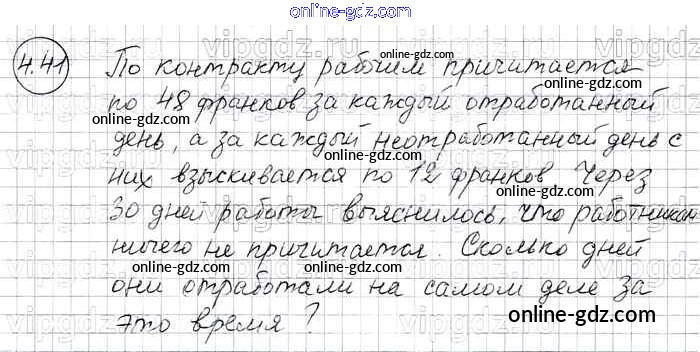 online-gdz.com
4.41 По контракту рабочим причитается
по 48 франков за каждый отработанный
день, а за каждый неотработанный день с
них взыскивается по 12 франков Через
30 дней работы выяснилось, что работникам
ничего не причитается. Сколько дней
они отработали на самом деле за
это время?
online-gdz.com
online-gdz.com
online-gdz.com
online-gdz.com
online-gdz.com
online-gdz.com
online-gdz.com
online-gdz.com
online-gdz.com
online-gdz.com
online-gdz.com